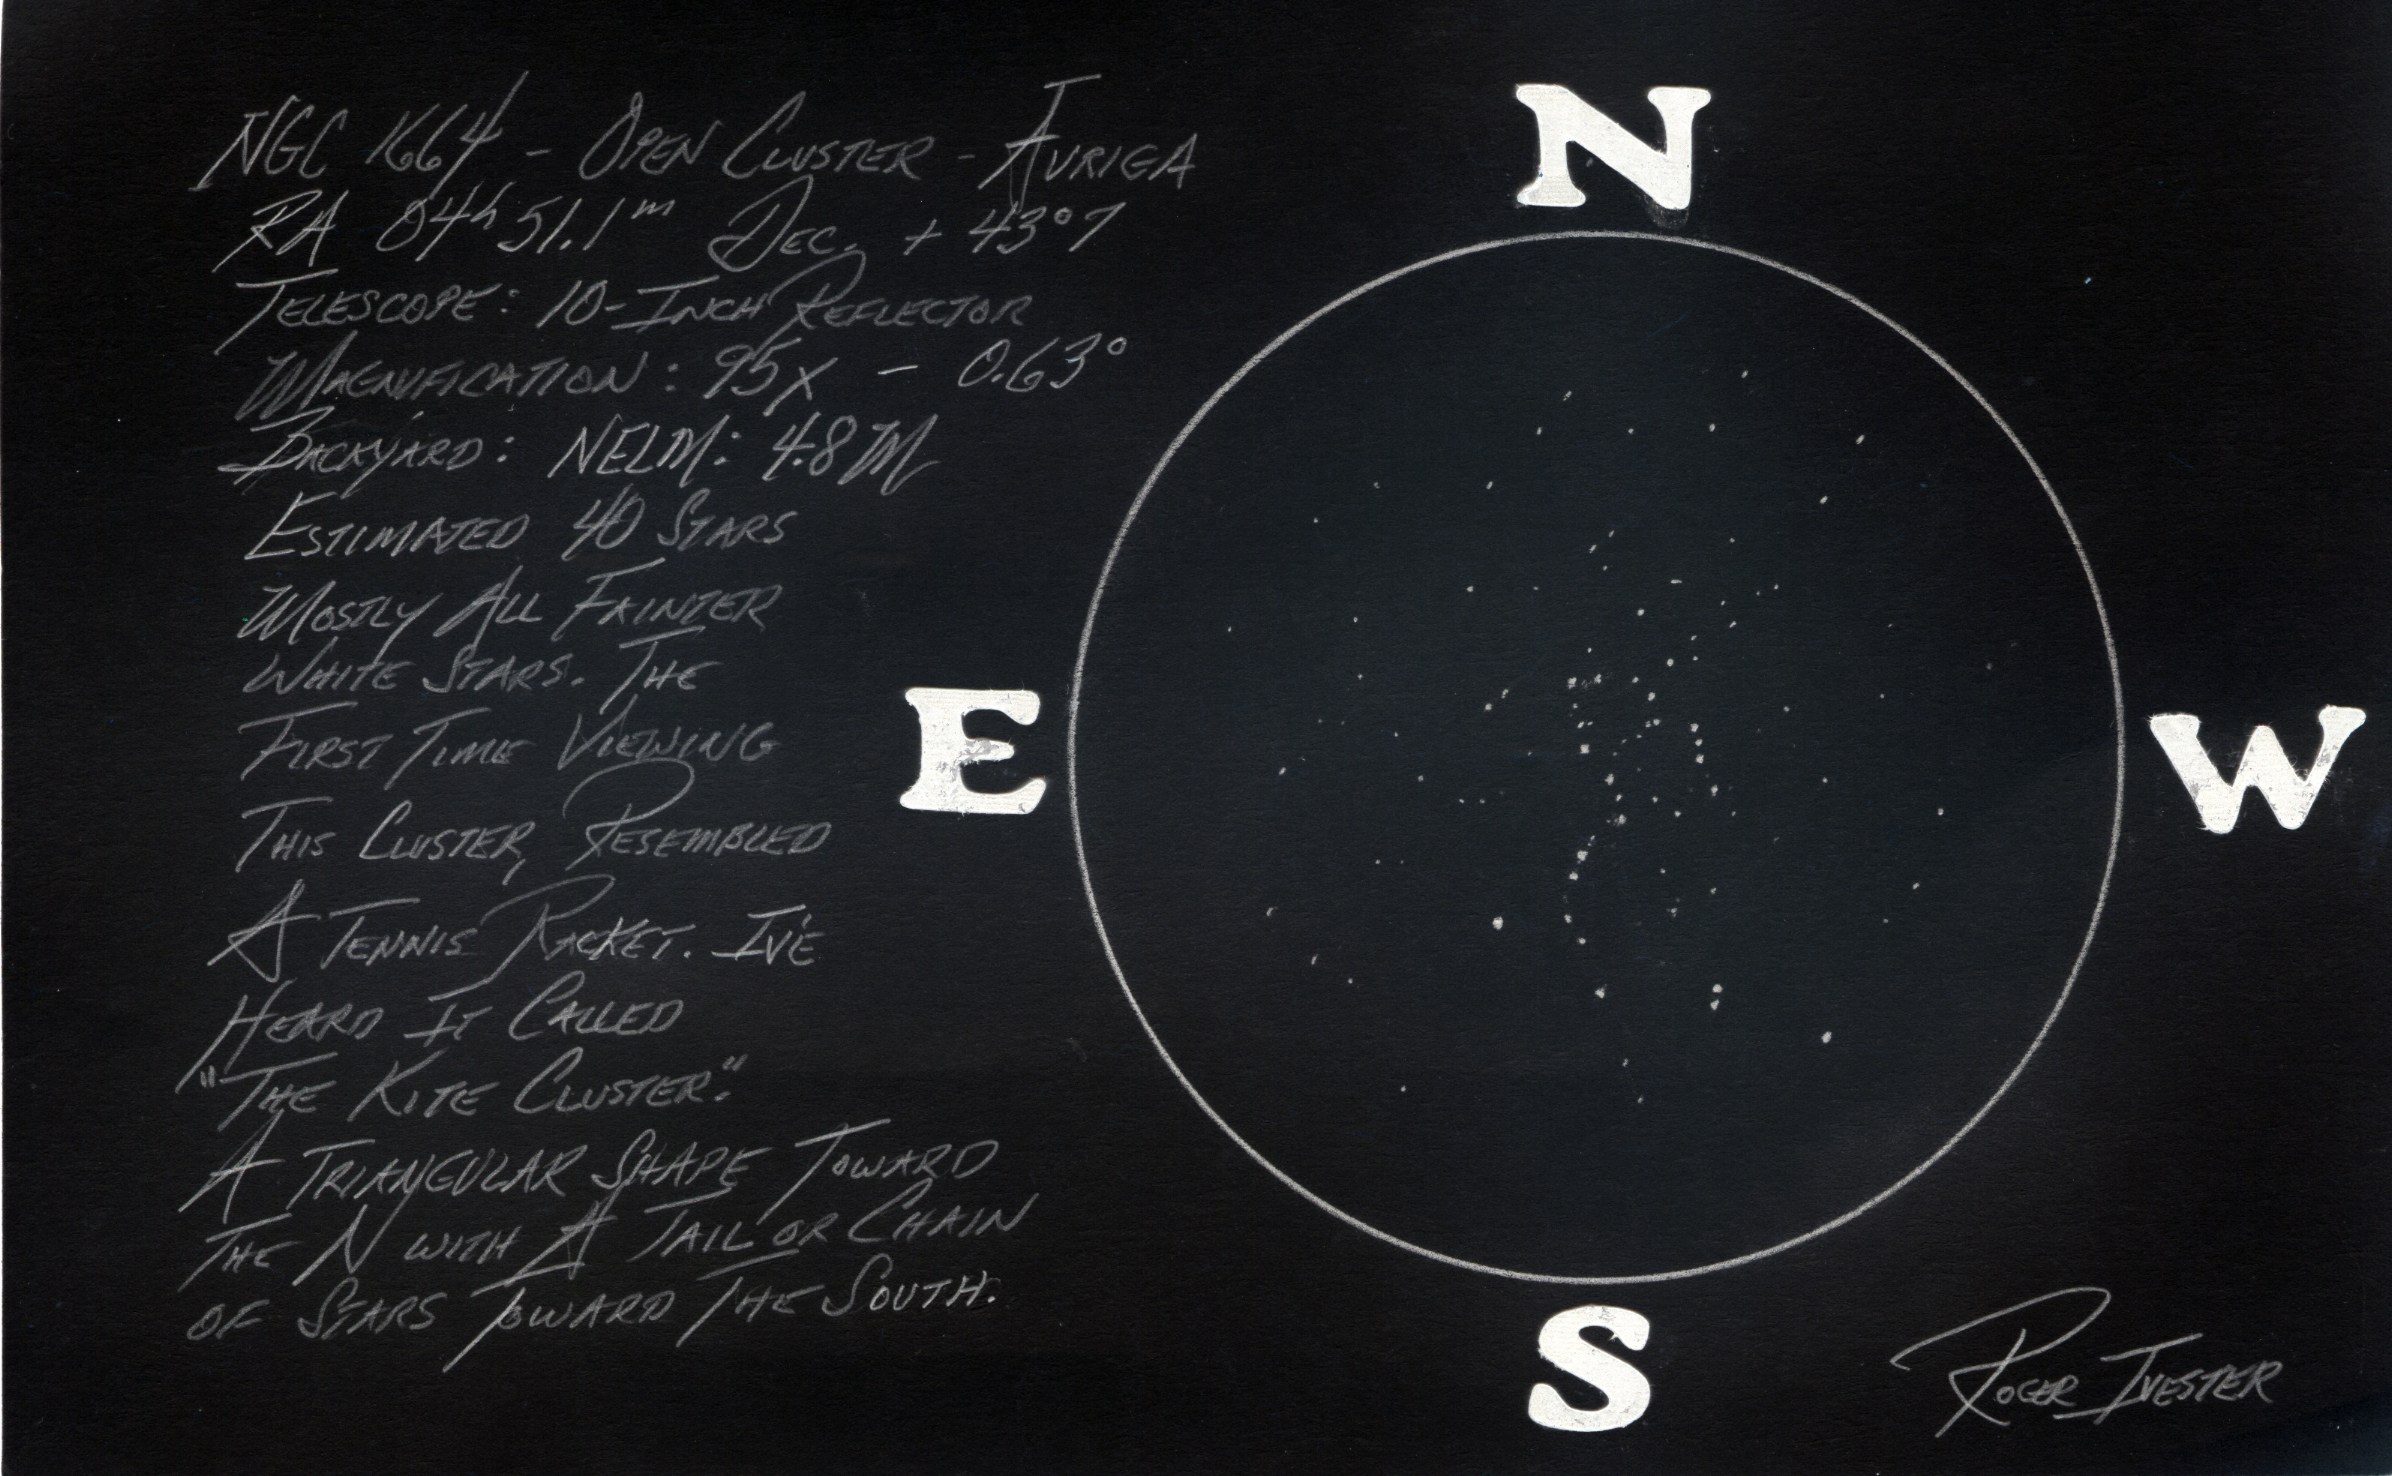 NGC 1664 - OPEN CLUSTER - AURIGA
RA 04h 51.1m DEC. + 43°7
TELESCOPE: 10-INCH REFLECTOR
MAGNIFICATION: 95X - 0.63°
BACKYARD: NELM: 4.8 M
ESTIMATED 40 STARS
MOSTLY ALL FAINTER
WHITE STARS. THE
FIRST TIME VIEWING
THIS CLUSTER, RESEMBLED
A TENNIS RACKET. IV'E
HEARD IT CALLED
"THE KITE CLUSTER."
A TRIANGULAR SHAPE TOWARD
THE N WITH A TAIL OR CHAIN
OF STARS TOWARD THE SOUTH.
N
E
W
S
ROGER IVESTER